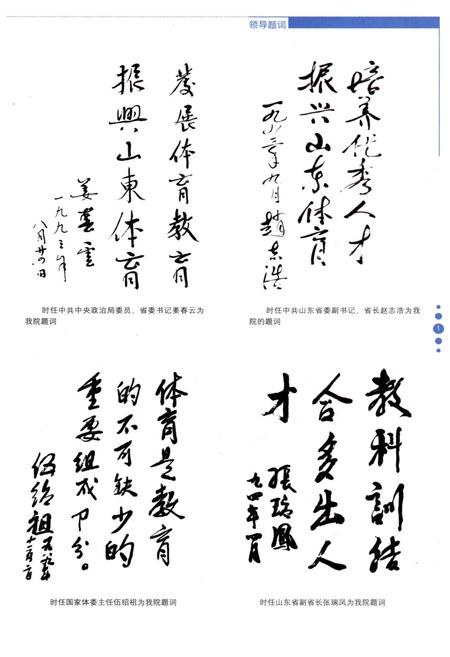 领导题词
發展体育教育
振興山東体育
姜春雲
一九九三年
八月廿四日
时任中共中央政治局委员、省委书记姜春云为
我院题词
培养优秀人才
振兴山东体育
赵志浩
时任中共山东省委副书记、省长赵志浩为我
院的题词
1
体育是教育
的不可缺少的
重要组成部分。
伍绍祖
时任国家体委主任伍绍祖为我院题词
教科訓结
合多出人
才
張瑞鳳
九四年
时任山东省副省长张瑞凤为我院题词